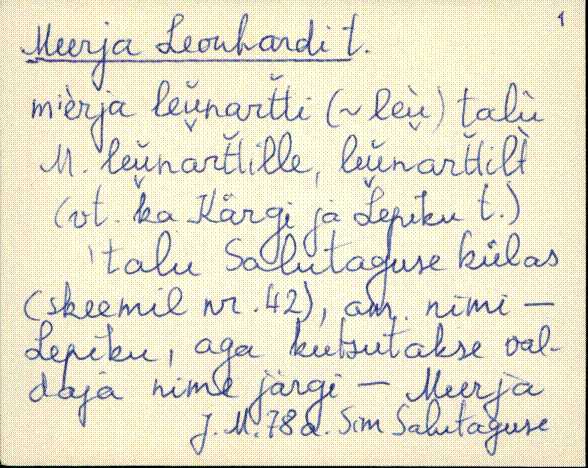 1
Meerja Leonhardi t.
mìerja leŭnartti (~ leù) talù
M. leŭnarttille, leŭnarttilt
(vt. ka Kärgi ja Lepiku t.)
talu Salutaguse külas
(skeemil nr. 42), am. nimi –
Lepiku, aga kutsutakse val-
daja nime järgi – Meerja
J. M. 78 a. Sim Salutaguse